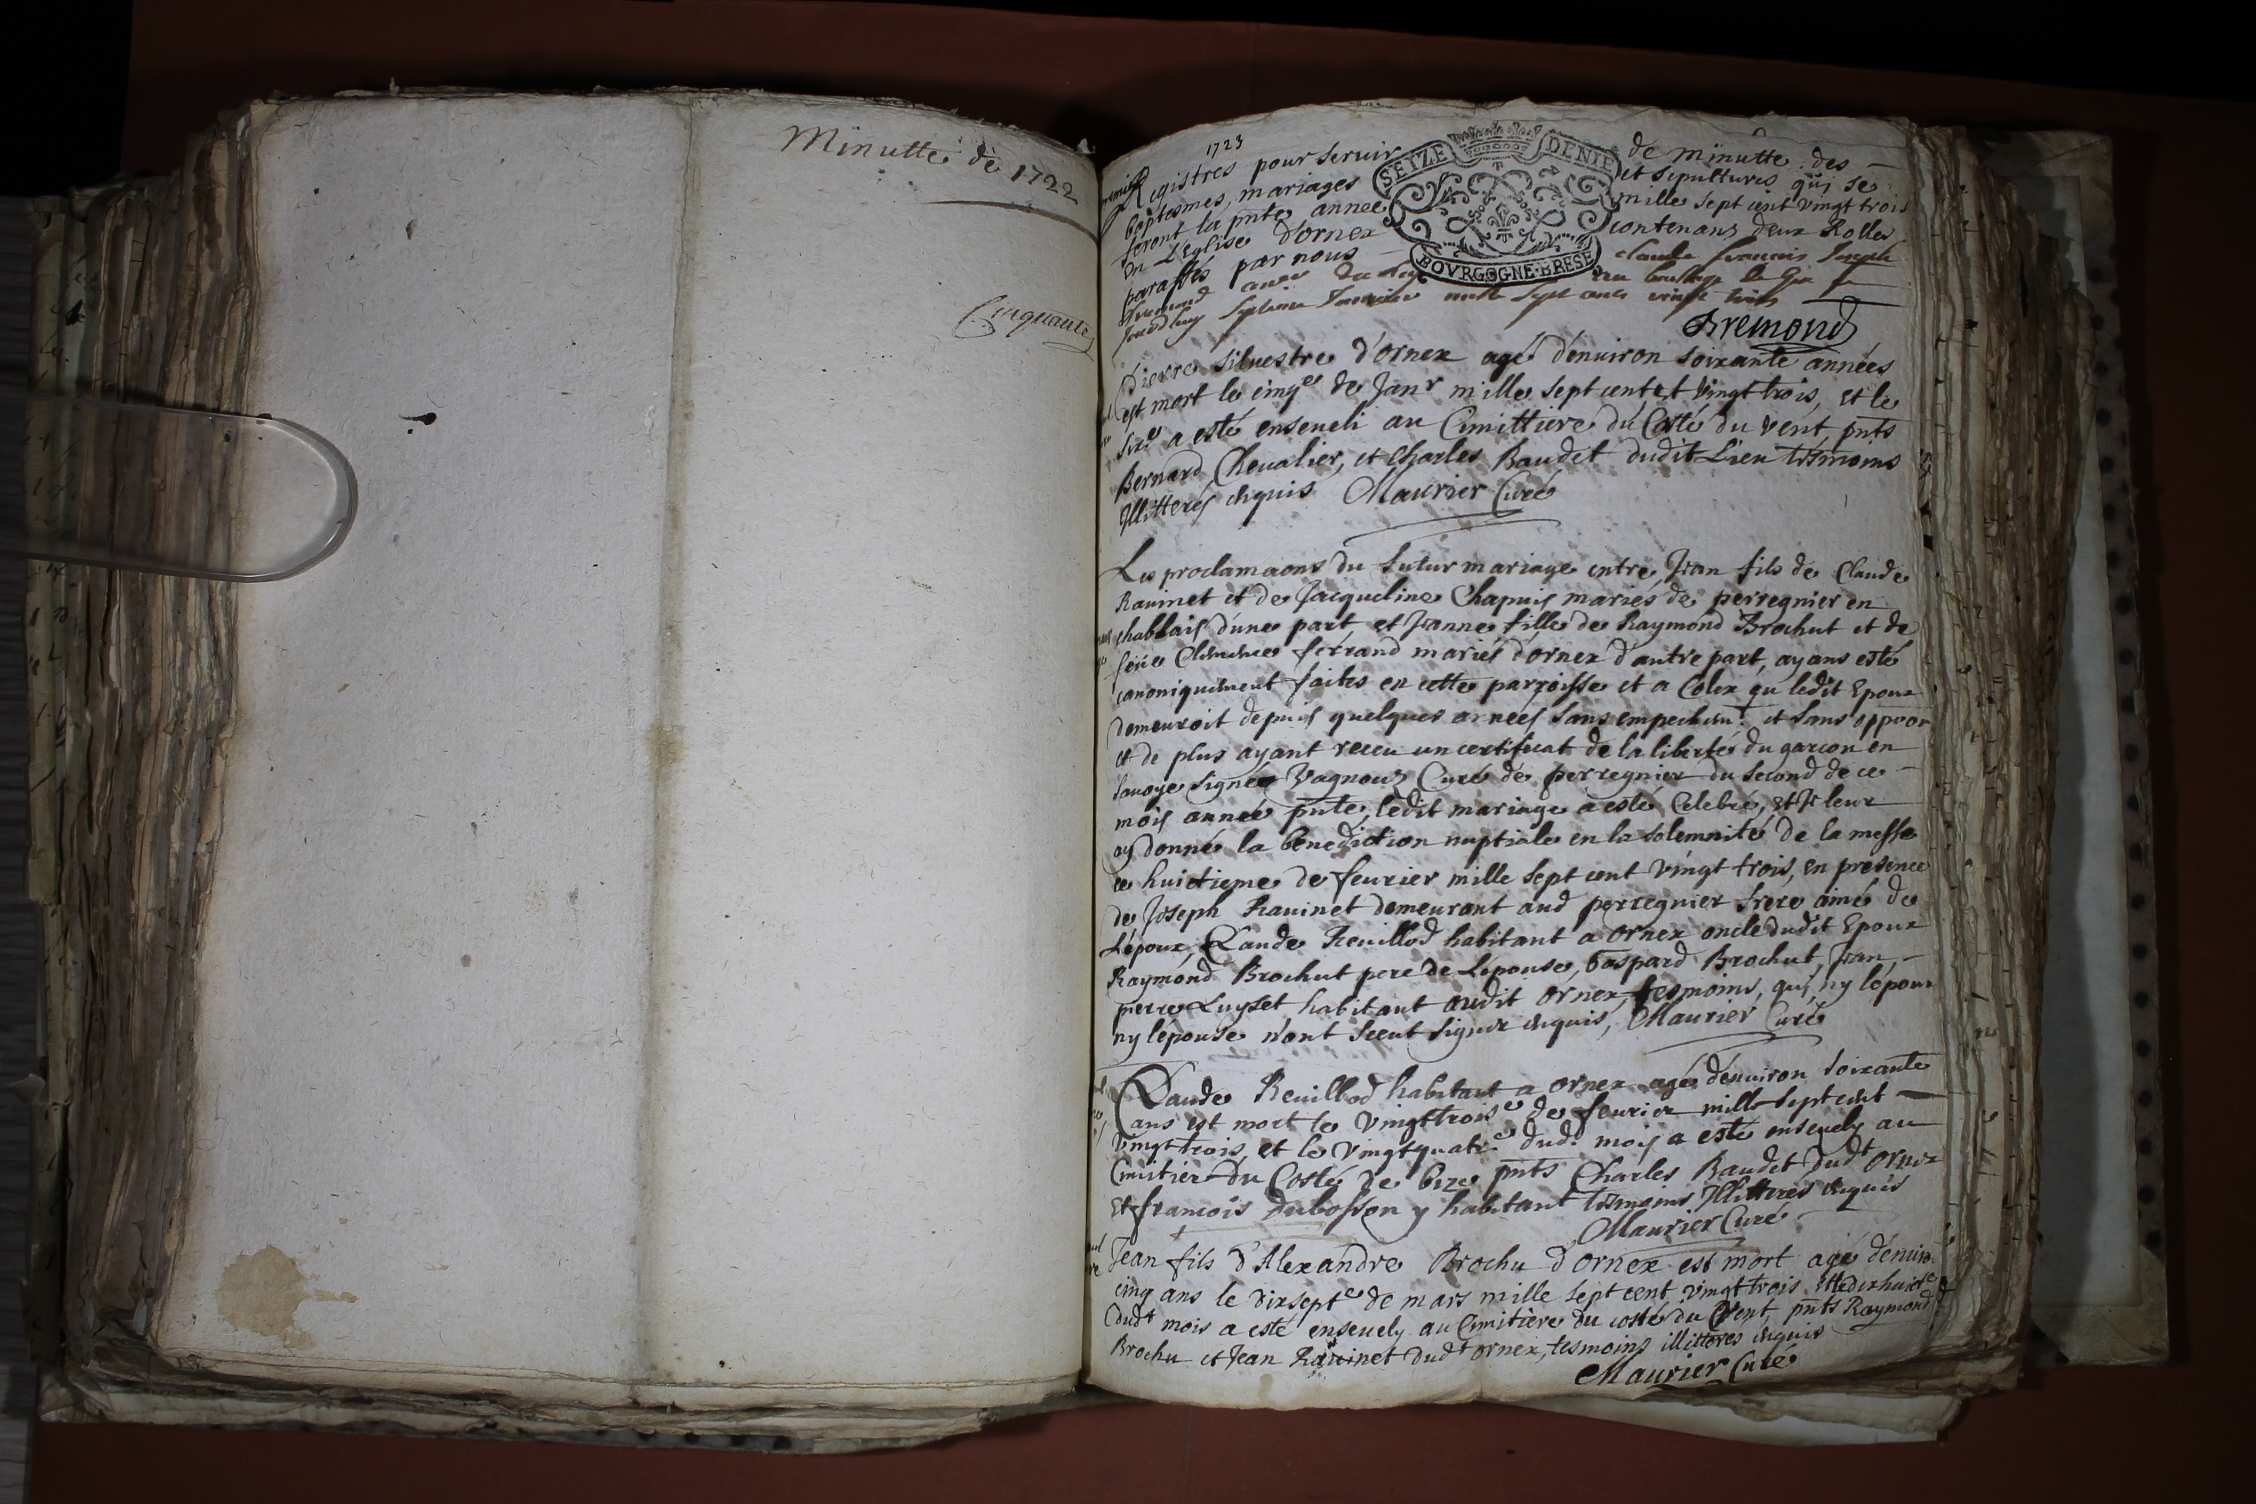 Minutte de 1722
Cinquante
1723
Registres pour servir de minutte des
baptesmes, mariages et sepultures qui se
feront la pnte année mille sept cent vingt trois
en L'eglise d'ornex contenans deux Rolles
paraffés par nous claude francois Joseph
mille sept cent vingt trois
SEIZE DENIE
BOVRGOGNE·BRESE
fremond
Pierre Siluestre d'ornex agé d'enuiron soixante années
est mort le cinqe de Janr mille sept cent et vingt trois, et le
sixe a esté enseueli au Cimittiere du Costé du vent pnts
Bernard Cheualier, et Charles Baudet dudit Lieu tesmoins
Illitterés enquis Maurier Curé
Les proclamaons du futur mariage entre Jean fils de Claude
Rauinet et de Jacqueline Chapuis mariés de perregnier en
chablais d'une part et Jeanne fille de Raymond Brochut et de
feue Clemence ferrand mariés d'ornex d'autre part, ayans esté
canoniquement faites en cette parroisse et a Colex ou ledit Epoux
demeuroit depuis quelques années sans empechemt. et sans oppoon
et de plus ayant receu un certificat de la liberté du garcon en
sauoye signée Vagnoux Curé de perregnier du second de ce
mois année pnte, ledit mariage a esté Celebré, et je leur
ay donné la benediction nuptiale en la solemnité de la messe
ce huictieme de feurier mille sept cent vingt trois, en presence
de Joseph Rauinet demeurant aud perregnier frere ainé de
L'époux, Claude Reuillod habitant a ornex oncle dudit Epoux
Raymond Brochut pere de L'epouse, Gaspard Brochut, Jean
pierre Luyset habitant audit ornex, tesmoins, qui, ny l'époux
ny l'épouse n'ont sceut signer enquis, Maurier Curé
Claude Reuillod habitant a ornex agé d'enuiron soixante
ans est mort le vingttroise de feurier mille sept cent
vingt trois, et le vingtquatre dud. mois a esté enseuely au
Cimitier du Costé de bize pnts Charles Baudet dudt ornex
Et francois dubosson y habitant tesmoins Illitterés enquis
Maurier Curé
Jean fils d'Alexandre Brochu d'ornex est mort agé d'enuiro
cinq ans le dixsepte de mars mille sept cent vingt trois et le dixhuicte
dudt mois a esté enseuely au Cimitiere du costé du vent, pnts Raymond
Brochu et Jean Rauinet dudt ornex, tesmoins illitteres enquis
Maurier Curé